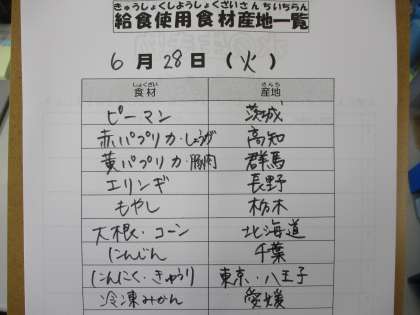 きゅうしょくしようしょくざいさんちいちらん
給食使用食材産地一覧
6月28日(火)
しょくざい さんち
食材 産地
ピーマン 茨城
赤パプリカ・しょうが 高知
黄パプリカ・豚肉 群馬
エリンギ 長野
もやし 栃木
大根・コーン 北海道
にんじん 千葉
にんにく・きゅうり 東京・八王子
冷凍みかん 愛媛